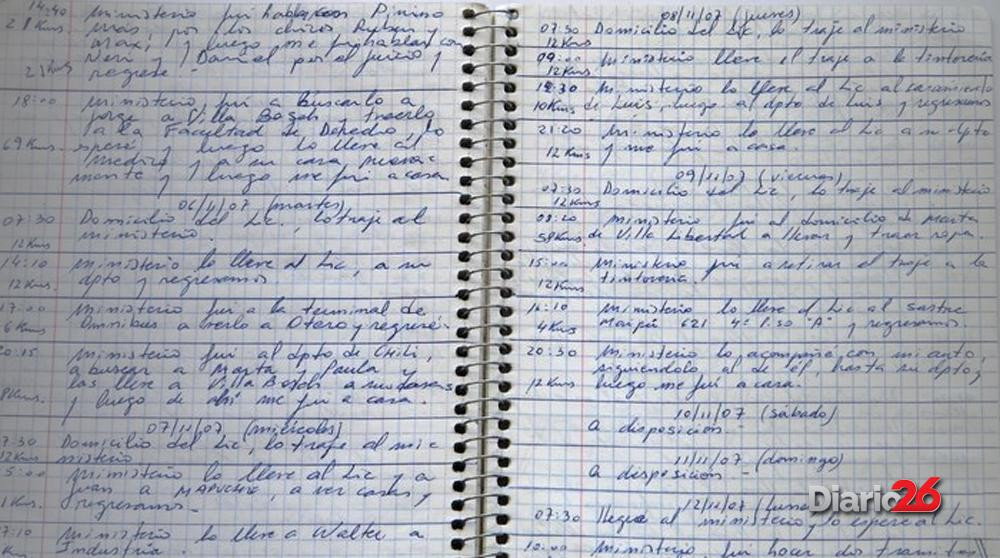 14:40 Ministerio fui hablar con Pinino
21 Kms. más, por los chicos Ruben y
Max, y luego me fui hablar con
Neri y Daniel por el juicio y
21 Kms regresé.-
18:00 Ministerio fui a buscarlo a
Jorge a Villa Bosch y traerlo
a la Facultad de Derecho, lo
69 Kms. esperé y luego lo lleve al
y a su casa nueva-
mente y luego me fui a casa.
06/11/07 (martes)
07:30 Domicilio del Lic, lo traje al
12 Kms ministerio.
14:10 Ministerio lo lleve al Lic, a su
12 Kms dpto y regresamos
17:00 Ministerio fui a la terminal de
6 Kms Omnibus a verlo a Otero y regresé.
20:15 Ministerio fui al dpto de Chili,
a buscar a Marta, Paula y
las lleve a Villa Bosch a sus casas
8 Kms. y luego de ahí me fui a casa.
07/11/07 (miércoles)
7:30 Domicilio del Lic, lo traje al mi-
12 Kms nisterio
5:00 Ministerio lo lleve al Lic y a
Juan a MAPUCHE, a ver casas y
1 Kms regresamos.
17:10 Ministerio lo lleve a Walter a
Industria.
08/11/07 (jueves)
07:30 Domicilio del Lic, lo traje al ministerio
12 Kms
09:00 Ministerio lleve el traje a la tintorería
12 Kms
12:30 Ministerio lo lleve al Lic al casamiento
10 Kms de Luis, luego al dpto de Luis y regresamos
21:20 Ministerio lo lleve al Lic a su dpto
12 Kms y me fui a casa.
09/11/07 (viernes)
07:30 Domicilio del Lic, lo traje al ministerio
12 Kms
09:20 Ministerio fui al domicilio de Marta
58 Kms de Villa Libertad a llevar y traer ropa.
15:00 Ministerio fui a retirar el traje a la
12 Kms tintorería.
16:10 Ministerio lo lleve al Lic al sastre
4 Kms Maipú 621 4º Piso "A" y regresamos.
20:30 Ministerio lo acompañé con mi auto,
siguiendolo al de él, hasta su dpto,
12 Kms luego me fui a casa.
10/11/07 (sábado)
a disposición -
11/11/07 (domingo)
a disposición.-
12/11/07 (lunes
07:30 llegue al ministerio y lo espere al Lic.
10:00 Ministerio fui hacer dos tramites
Diario26